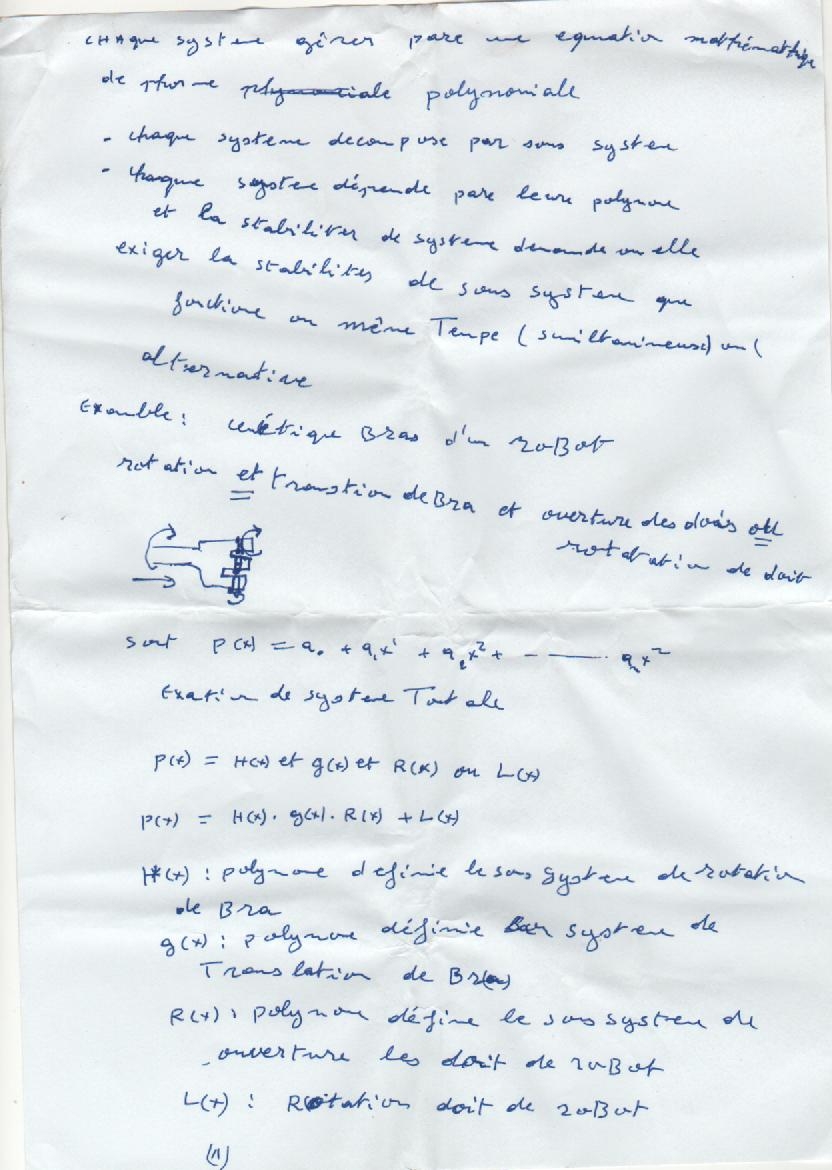 CHAque systeme gérer pare une equation mathématique
de phorme polynomiale
. chaque systeme decompose par sous system
. chaque systeme dépende pare leure polynome
et la stabiliter de systeme demande ou elle
exiger la stabilites de sous system que
fonctione ou même Tempe ( similtanineuse) ou (
alternative
Examble: cenétique Bras d'un roBot
rotation et transtion de Bra et ouverture des doits ou
rotatation de doit
soit p(x) = a0 + a1x¹ + a2x² + - —— anx²
Exation de systeme Totale
p(x) = H(x) et g(x) et R(x) ou L(x)
p(x) = H(x) . g(x) . R(x) + L(x)
H(x) : polynome definie le sous systeme de rotation
de Bra
g(x) : polynome définie systeme de
Translation de Bra
R(x) : polynome défine le sous systeme de
ouverture les doit de roBot
L(x) : Rotation doit de roBot
(1)